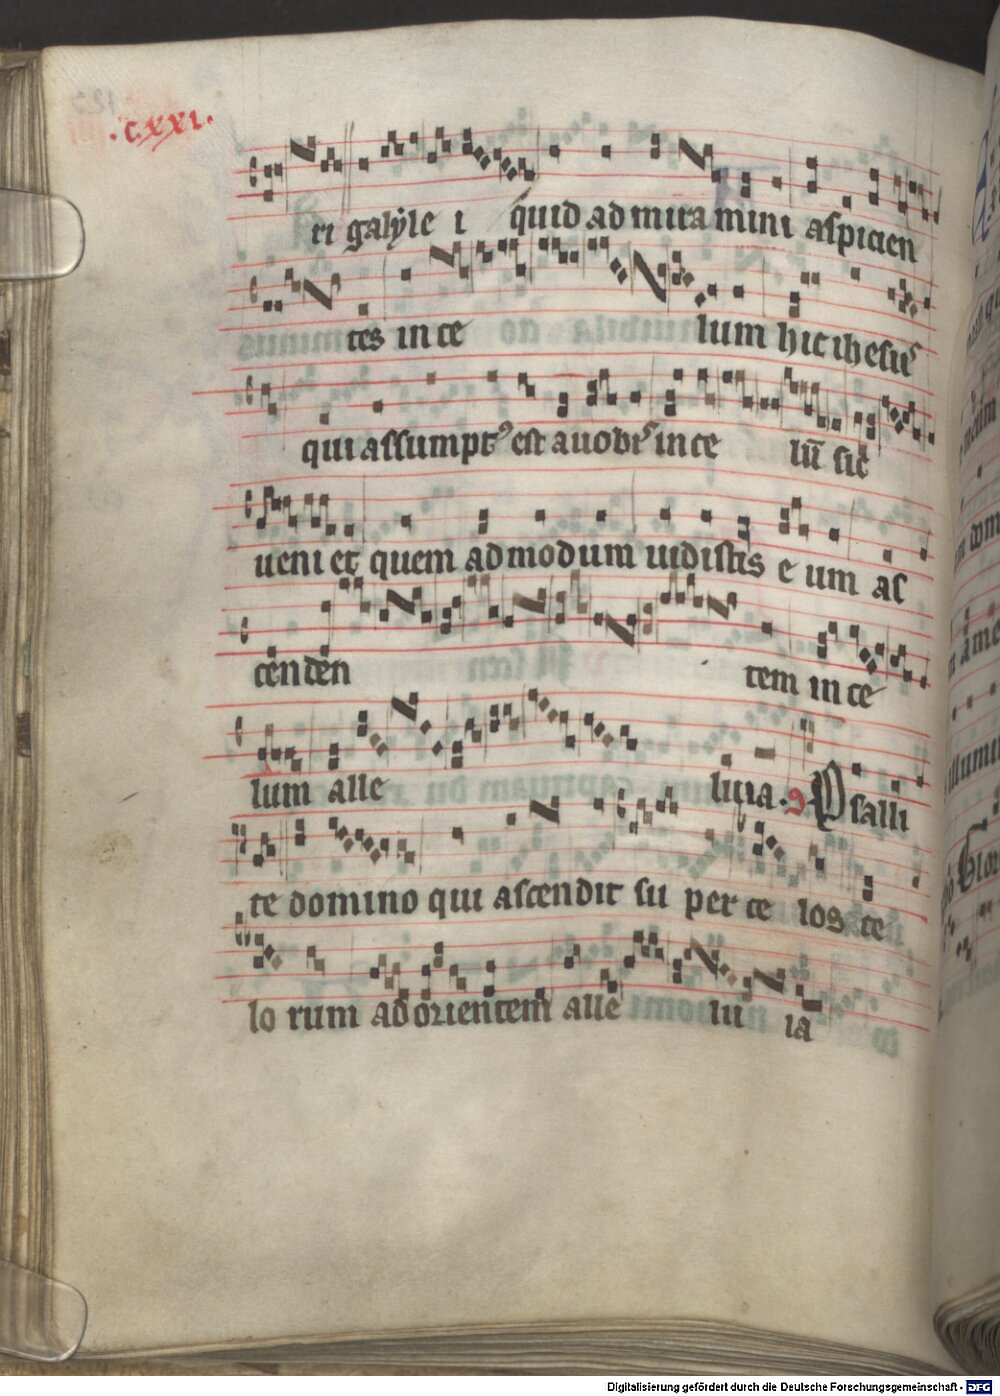 .cxxi.
ri galÿle i quid ad mira mini aspicien
tes in ce lum hic ihesus
qui assumptꝰ est a vobis in ce lū sic
ueni et quem ad modum uidistis e um as
cen den tem in ce
lum alle luia. Psalli
te domino qui ascendit su per ce los ce
lo rum ad orientem alle lu ia
Digitalisierung gefördert durch die Deutsche Forschungsgemeinschaft - DFG